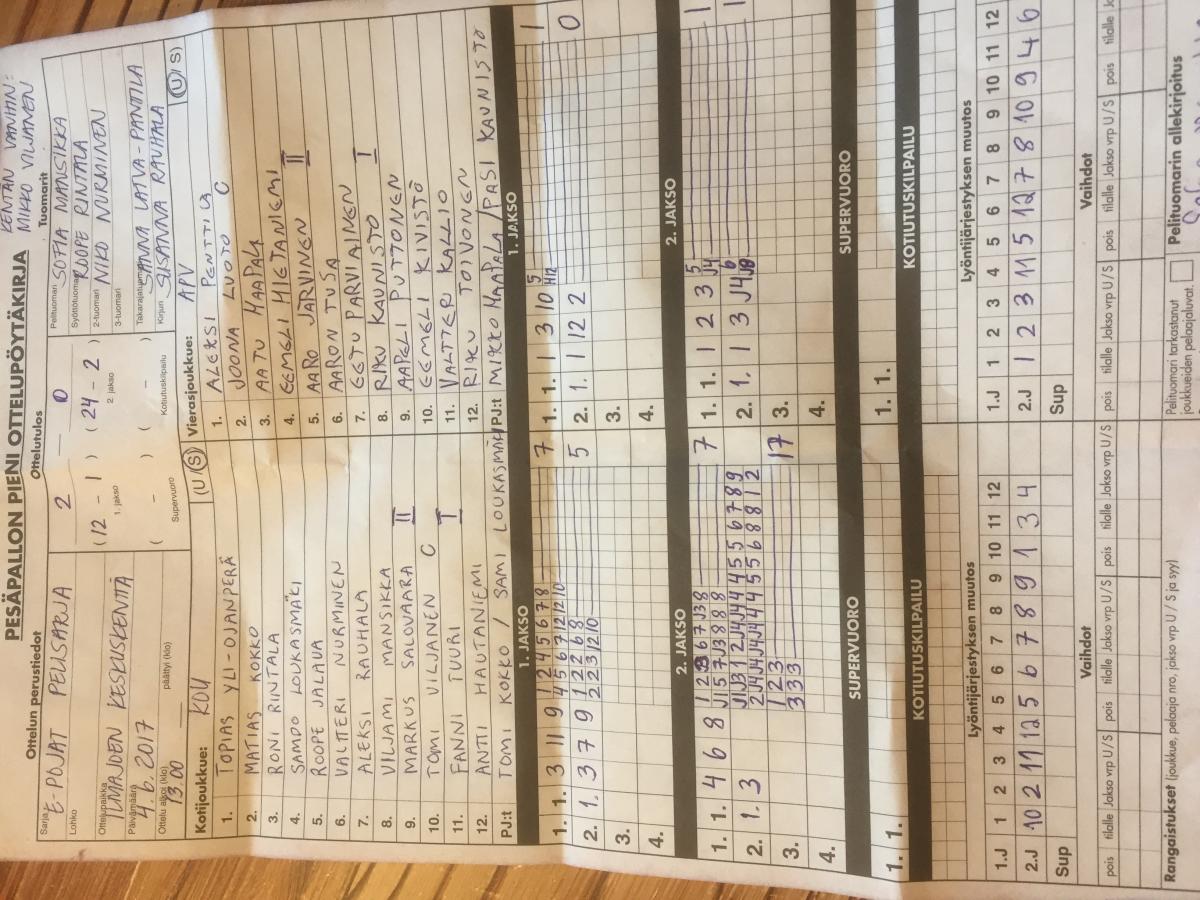 PESÄPALLON PIENI OTTELUPÖYTÄKIRJA
KENTÄN VANHIN:
MIKKO VILJANEN
Ottelun perustiedot
Sarja E-POJAT PELISARJA
Lohko
Ottelupaikka ILMAJOEN KESKUSKENTÄ
Päivämäärä 4.6.2017
Ottelu alkoi (klo) 13.00 päättyi (klo) —
Ottelutulos
2 — 0
(12 - 1) (24 - 2)
1. jakso 2. jakso
( - ) ( - )
Supervuoro Kotiutuskilpailu
Tuomarit
Pelituomari SOFIA MANSIKKA
Syöttötuomari ROOPE RINTALA
2-tuomari NIKO NURMINEN
3-tuomari
Takarajatuomari SANNA LATVA-PANTILA
Kirjuri SUSANNA RAUHALA
Kotijoukkue: KOU (U/S)
1. TOPIAS YLI-OJANPERÄ
2. MATIAS KOKKO
3. RONI RINTALA
4. SAMPO LOUKASMÄKI
5. ROOPE JALAVA
6. VALTTERI NURMINEN
7. ALEKSI RAUHALA
8. VILJAMI MANSIKKA
9. MARKUS SALOVAARA II
10. TOMI VILJAINEN C
11. FANNI TUURI I
12. ANTTI HAUTANIEMI
PJ:t TOMI KOKKO / SAMI LOUKASMÄKI
Vierasjoukkue: APV (U/S)
1. ALEKSI PENTTILÄ
2. JOONA LUOTO C
3. AATU HAAPALA
4. EEMELI HIETANIEMI
5. AARO JÄRVINEN II
6. AARON TUISA
7. EETU PARVIAINEN
8. RIKU KAUNISTO I
9. AAPELI PUTTONEN
10. EEMELI KIVISTÖ
11. VALTTERI KALLIO
12. RIKU TOIVONEN
PJ:t MIKKO HAAPALA/PASI KAUNISTO
1. JAKSO
1. 1. 3 11 9 1 2 4 5 6 7 8 7
4 5 6 7 12 12 10
2. 1. 3 7 9 1 2 2 6 8 5
2 2 3 12 10
3.
4.
1. JAKSO
1. 1. 1 3 10 5 1
H12
2. 1. 1 12 2 0
3.
4.
2. JAKSO
1. 1. 4 6 8 7
2. 1. 3
3. 17
1 2 3
3 3 3
4.
2. JAKSO
1. 1. 1 2 3 5 1
J4
2. 1. 1 3 J4 6 1
J8
3.
4.
SUPERVUORO
1. 1.
SUPERVUORO
1. 1.
KOTIUTUSKILPAILU
KOTIUTUSKILPAILU
Lyöntijärjestyksen muutos
1.J 1 2 3 4 5 6 7 8 9 10 11 12
2.J 10 2 11 12 5 6 7 8 9 1 3 4
Sup
Lyöntijärjestyksen muutos
1.J 1 2 3 4 5 6 7 8 9 10 11 12
2.J 1 2 3 11 5 12 7 8 10 9 4 6
Sup
Vaihdot
pois tilalle Jakso vrp U/S pois tilalle Jakso vrp U/S pois tilalle Jakso vrp U/S
Vaihdot
pois tilalle Jakso vrp U/S pois tilalle Jakso vrp U/S pois tilalle
Rangaistukset (joukkue, pelaaja nro, jakso vrp U / S ja syy)
Pelituomari tarkastanut
joukkueiden pelaajaluvat.
Pelituomarin allekirjoitus